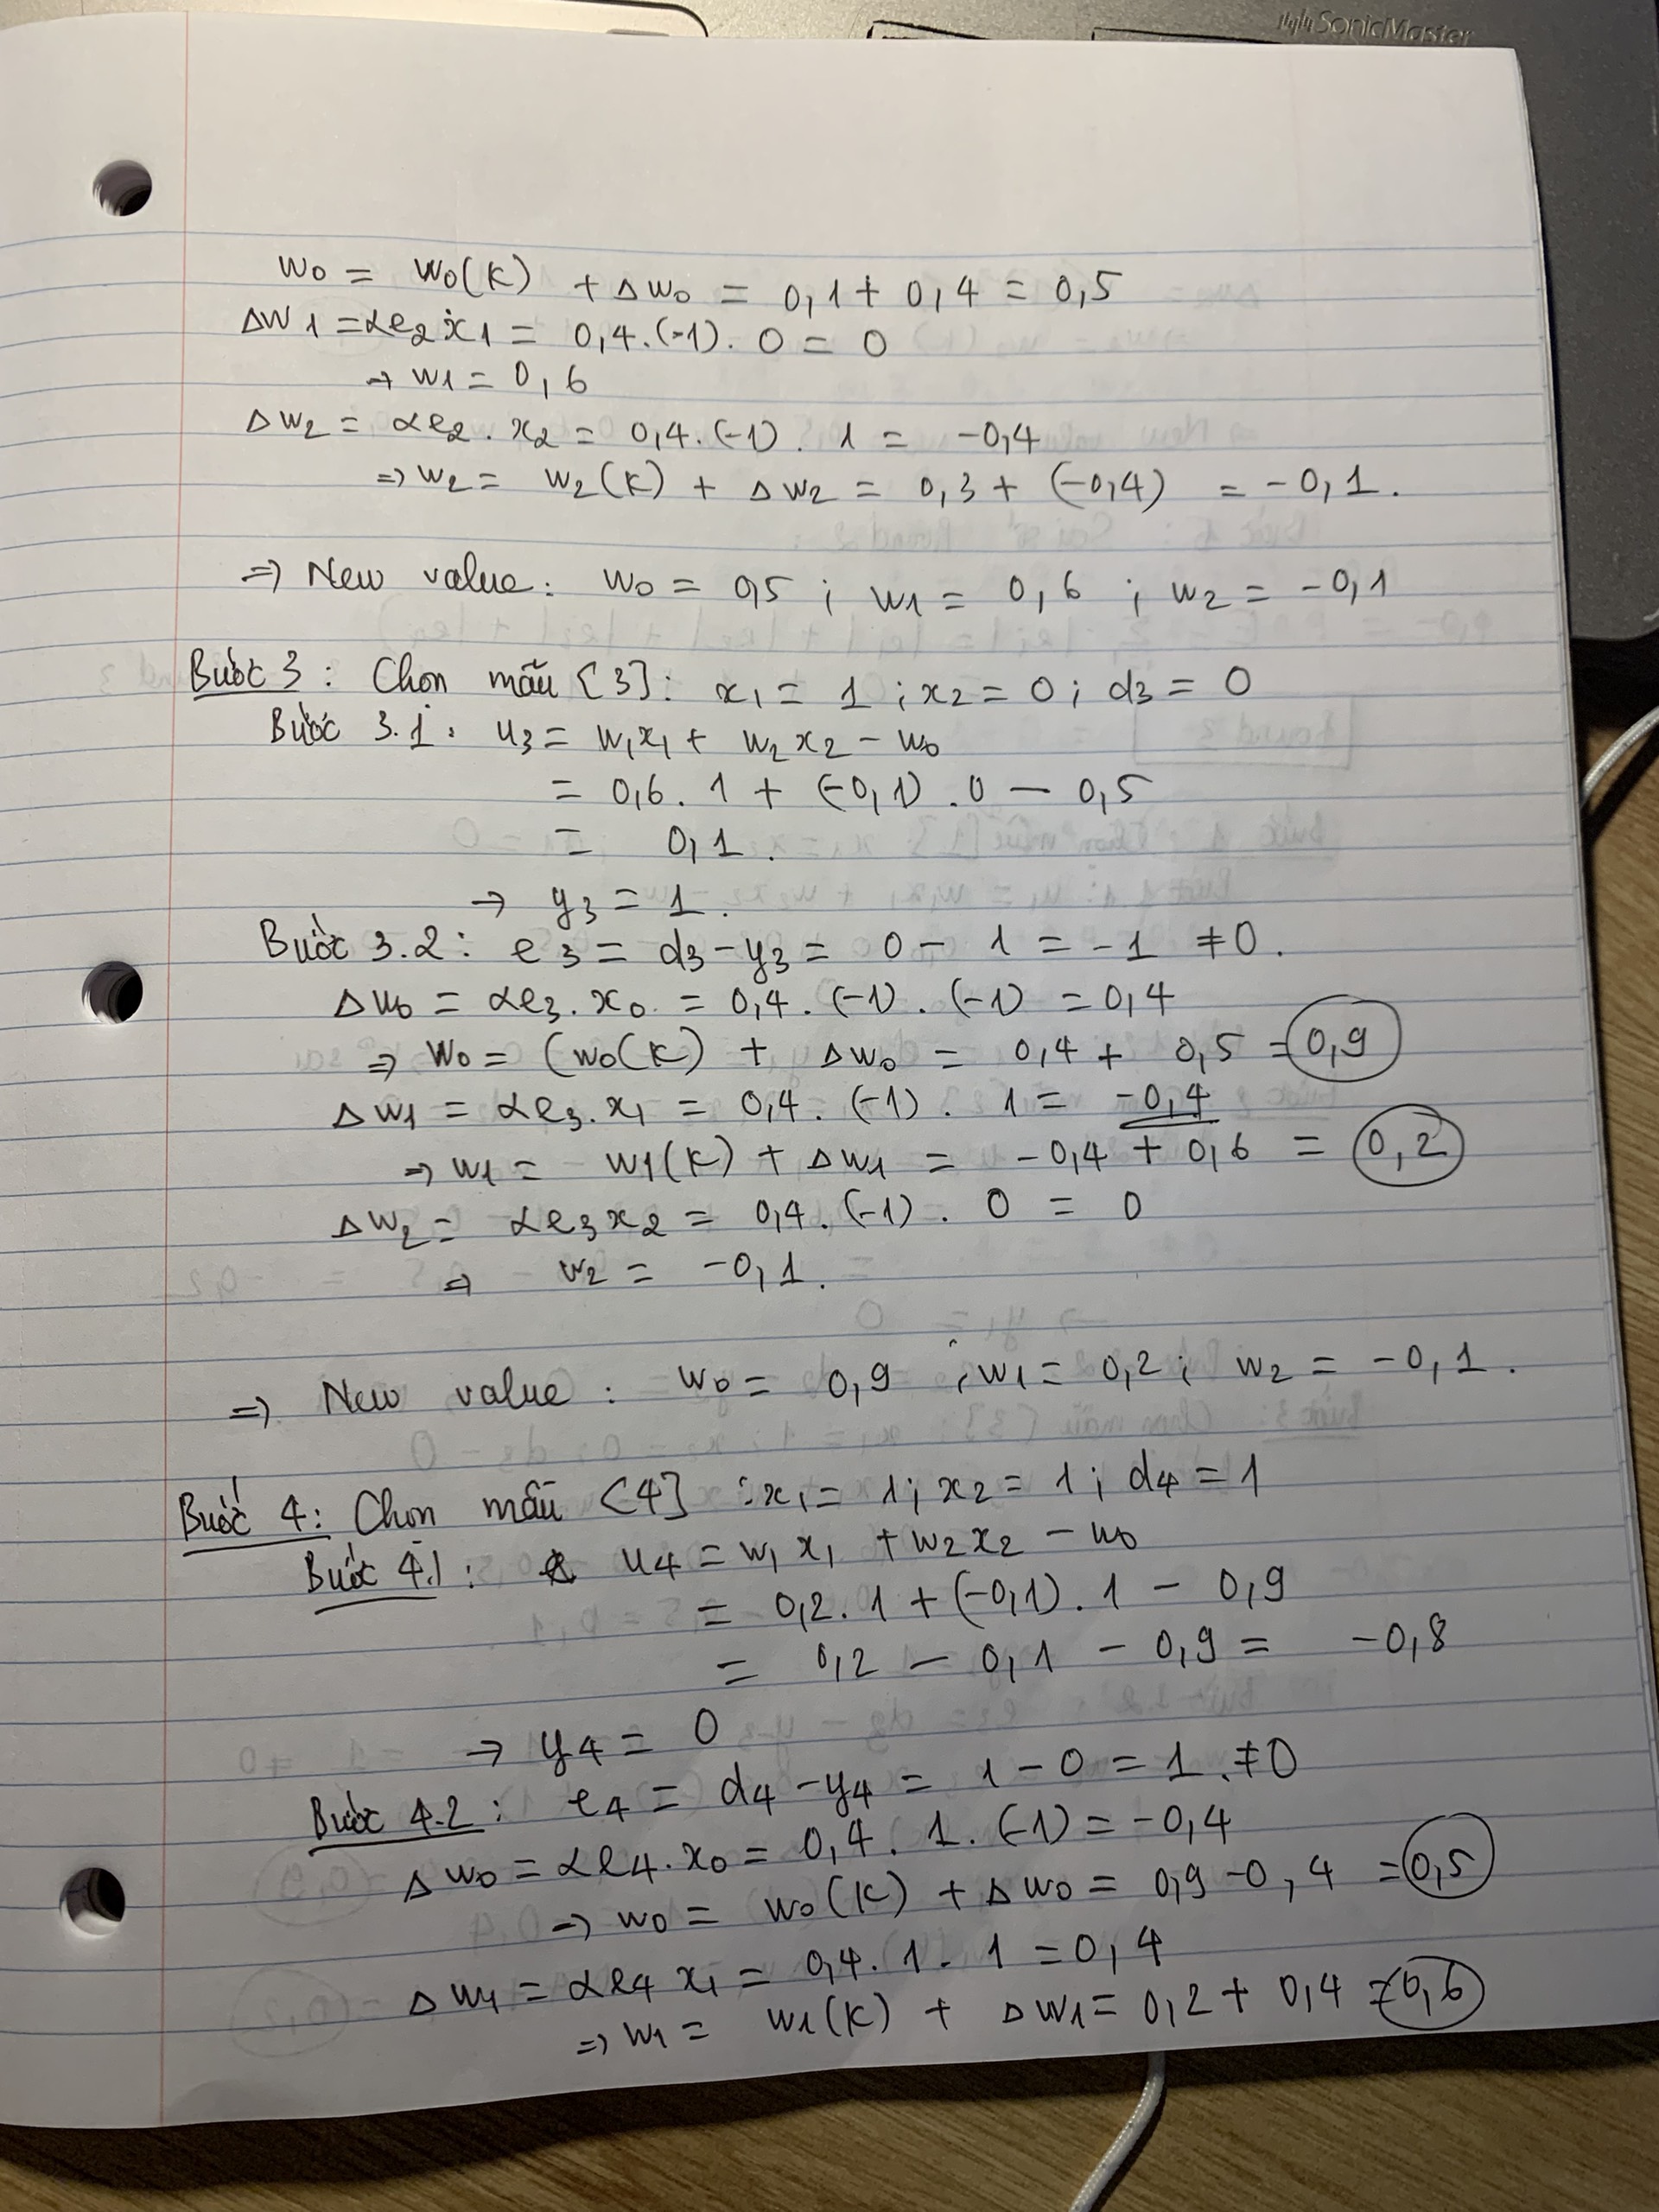 SonicMaster
w0 = w0(K) + Δw0 = 0,1 + 0,4 = 0,5
Δw1 = αe2 x1 = 0,4.(-1). 0 = 0
→ w1 = 0,6
Δw2 = αe2 . x2 = 0,4.(-1). 1 = -0,4
=> w2 = w2(K) + Δw2 = 0,3 + (-0,4) = -0,1.
=> New value: w0 = 0,5 ; w1 = 0,6 ; w2 = -0,1
Bước 3 : Chọn mẫu [3]: x1 = 1 ; x2 = 0 ; d3 = 0
Bước 3.1 : u3 = w1x1 + w2x2 - w0
= 0,6. 1 + (-0,1) .0 - 0,5
= 0,1.
→ y3 = 1.
Bước 3.2 : e3 = d3 - y3 = 0 - 1 = -1 ≠ 0.
Δw0 = αe3. x0 = 0,4. (-1) . (-1) = 0,4
=> w0 = (w0(K) + Δw0 = 0,4 + 0,5 = 0,9
Δw1 = αe3. x1 = 0,4. (-1) . 1 = -0,4
=> w1 = w1(K) + Δw1 = -0,4 + 0,6 = 0,2
Δw2 = αe3x2 = 0,4. (-1) . 0 = 0
=> w2 = -0,1.
=> New value : w0 = 0,9 ; w1 = 0,2 ; w2 = -0,1.
Bước 4 : Chọn mẫu [4] : x1 = 1 ; x2 = 1 ; d4 = 1
Bước 4.1 : u4 = w1 x1 + w2x2 - w0
= 0,2. 1 + (-0,1). 1 - 0,9
= 0,2 - 0,1 - 0,9 = -0,8
→ y4 = 0
Bước 4.2 : e4 = d4 - y4 = 1 - 0 = 1. ≠ 0
Δw0 = αe4. x0 = 0,4. 1. (-1) = -0,4
=> w0 = w0(K) + Δw0 = 0,9 - 0,4 = 0,5
Δw1 = αe4 x1 = 0,4. 1. 1 = 0,4
=> w1 = w1(K) + Δw1 = 0,2 + 0,4 = 0,6